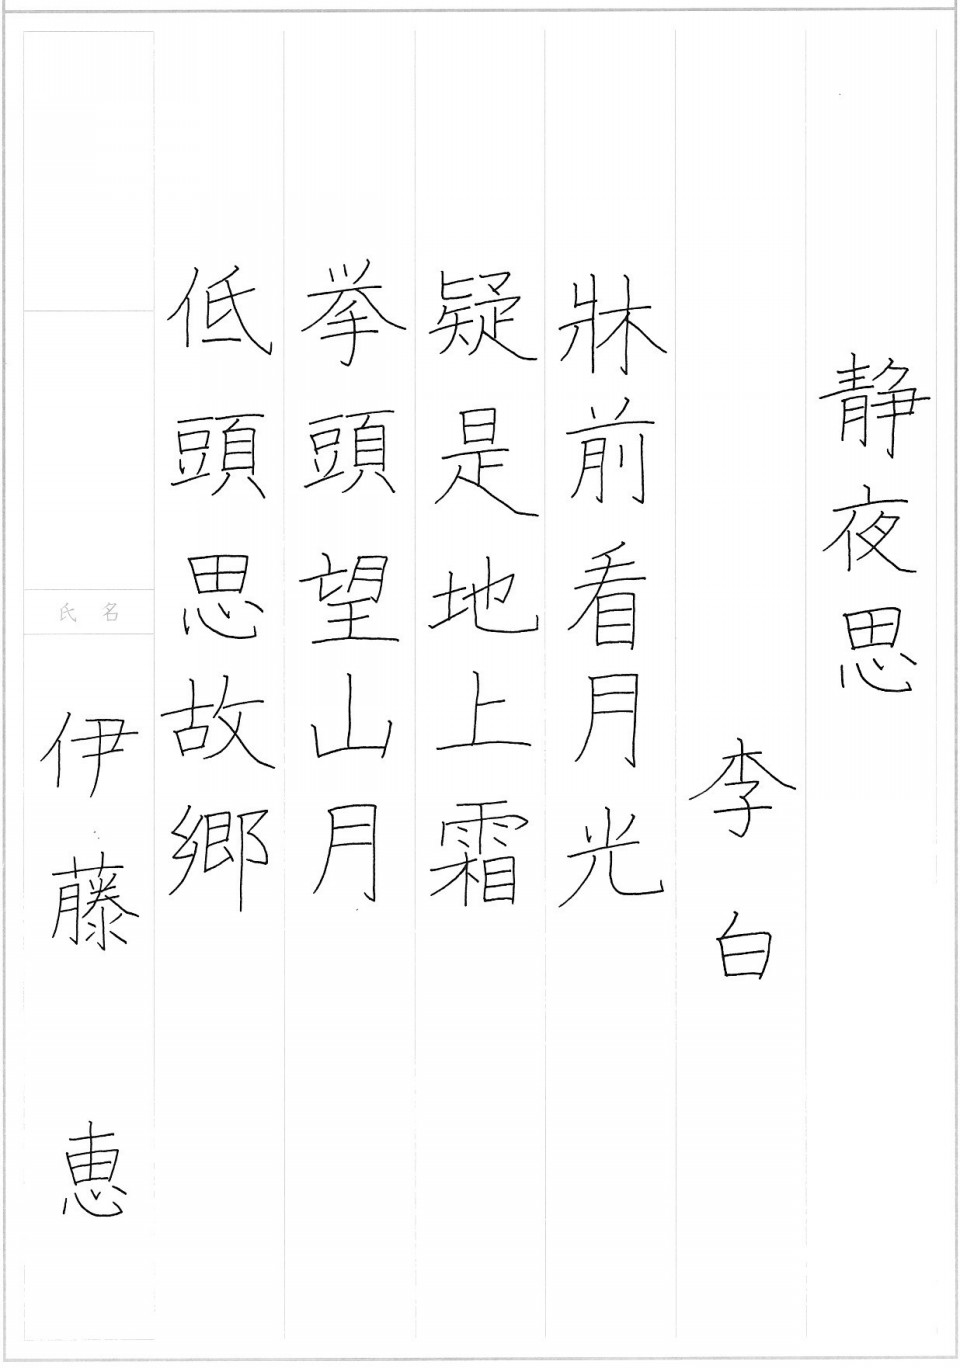 静夜思
李白
牀前看月光
疑是地上霜
挙頭望山月
低頭思故郷
氏名
伊藤 恵